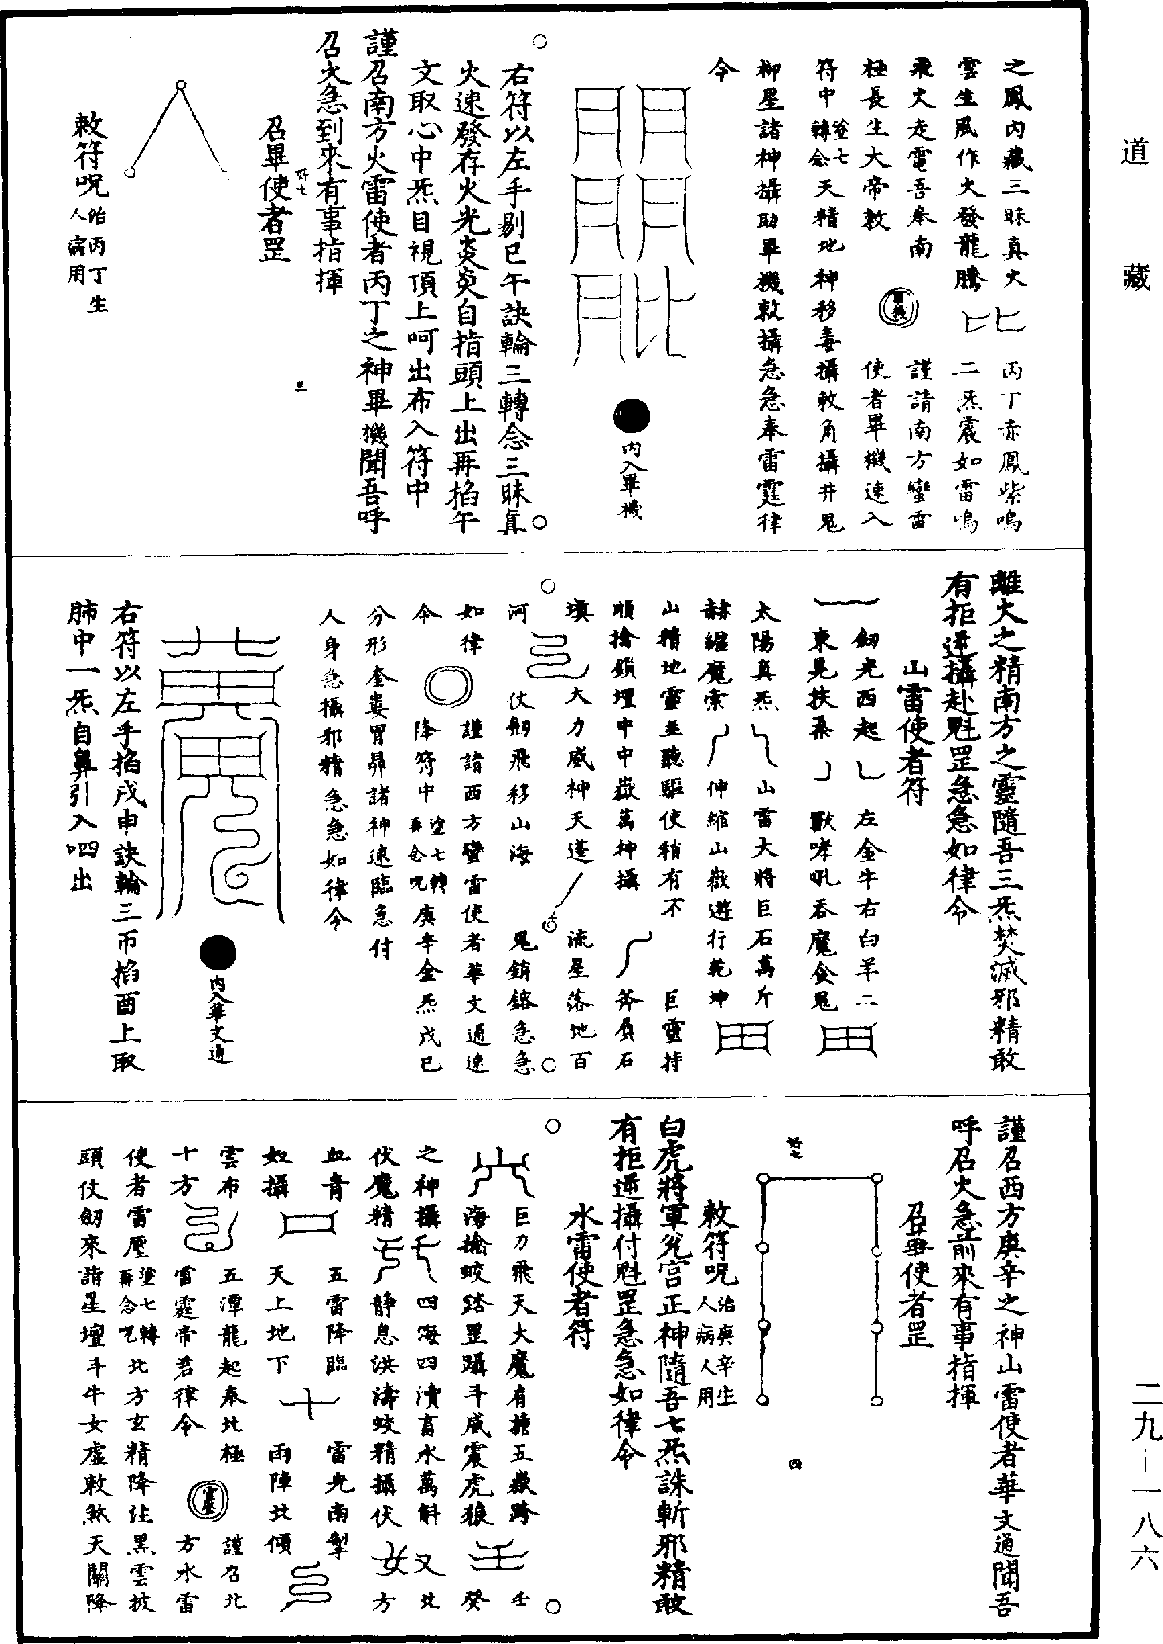 道藏
之鳳內藏三昧真火
丙丁赤鳳紫鳴
雲生風作火發龍騰
二炁震如雷鳴
飛火走電吾奉南
謹請南方蠻雷
極長生大帝敕
畢機
使者畢機速入
符中
塗七轉念
天精地神移毒攝敕角攝井鬼
柳星諸神攝助畢機敕攝急急奉雷霆律
令
內入畢機
右符以左手剔巳午訣輪三轉念三昧真
火速發存火光炎炎自指頭上出再掐午
文取心中炁目視頂上呵出布入符中
謹召南方火雷使者丙丁之神畢機聞吾呼
召火急到來有事指揮
召畢使者罡
三
敕符呪
治丙丁生人病用
離火之精南方之靈隨吾三炁焚滅邪精敢
有拒逆攝赴魁罡急急如律令
山雷使者符
劒光西起
左金牛右白羊二
東晃扶桑
獸哮吼吞魔食鬼
太陽真炁
山雷大將巨石萬斤
赫繼魔索
伸縮山嶽遊行乾坤
山精地靈並聽驅使稍有不
巨靈持
順擒鎖壇中中嶽萬神攝
斧屓石
填
大力威神天蓬
流星落地百
河
仗劒飛移山海
鬼銷鎔急急
如律
謹請西方蠻雷使者華文通速
令
降符中
塗七轉再念呪
庚辛金炁戊巳
分形奎婁胃昴諸神速臨急付
人身急攝邪精急急如律令
內入華文通
右符以左手掐戌申訣輪三帀掐酉上取
肺中一炁自鼻引入呬出
謹召西方庚辛之神山雷使者華文通聞吾
呼召火急前來有事指揮
召畢使者罡
四
敕符呪
治庚辛生人病人用
白虎將軍兌宮正神隨吾七炁誅斬邪精敢
有拒逆攝付魁罡急急如律令
水雷使者符
巨力飛天大魔有搪五嶽跨
壬
海擒蛟踏罡躡斗威震虎狼
癸
之神攝
四海四瀆畜水萬斛
北
伏魔精
靜息洪濤蛟精攝伏
方
血膏
五雷降臨
雷光南掣
如攝
天上地下
雨陣北傾
雲布
五潭龍起奉北極
謹召北
十方
雷霆帝君律令
雷壓
方水雷
使者雷壓
塗七轉再念呪
北方玄精降注黑雲披
頭仗劒來詣星壇斗牛女虛敕煞天關降
二九—一八六